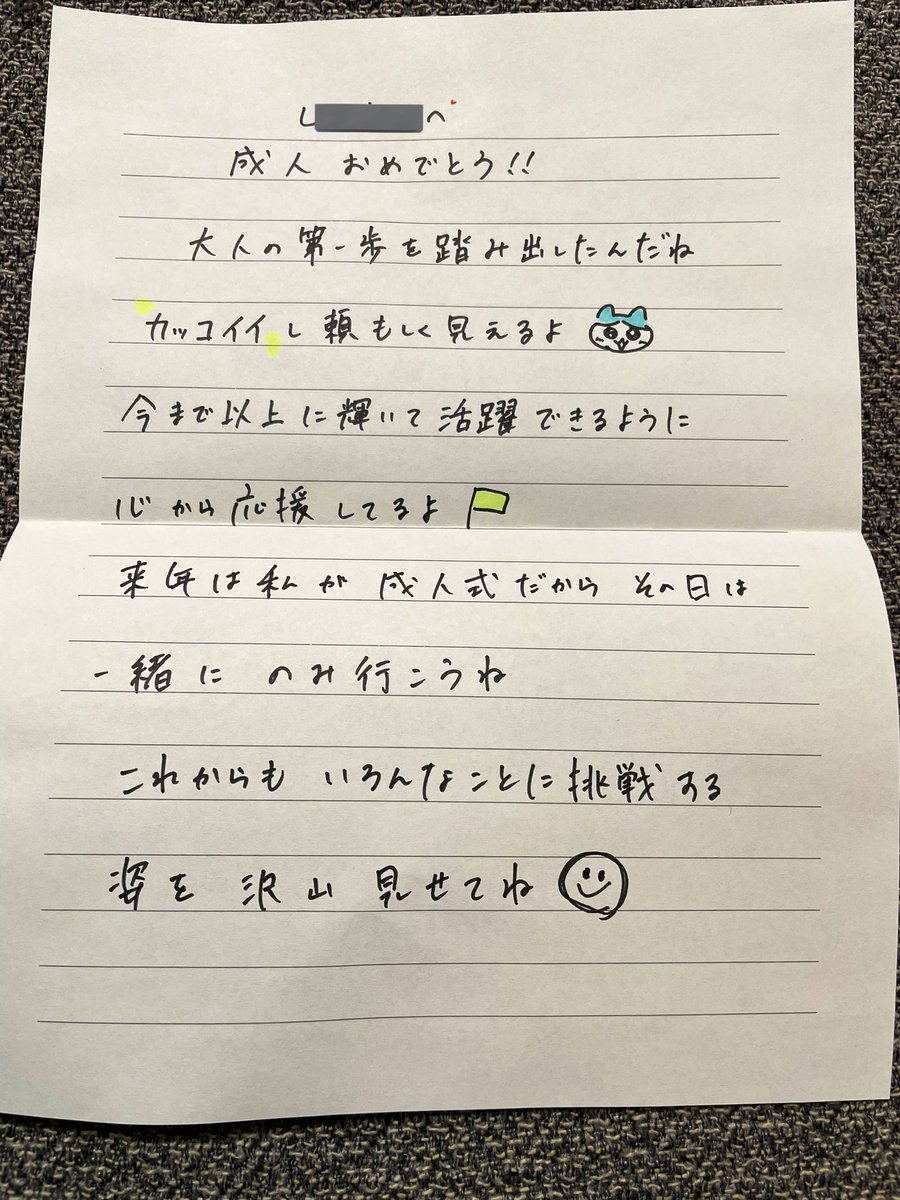 し へ
成人 おめでとう!!
大人の第一歩を踏み出したんだね
カッコイイし頼もしく見えるよ
今まで以上に輝いて活躍できるように
心から応援してるよ
来年は私が 成人式だから その日は
一緒に のみ行こうね
これからも いろんなことに挑戦する
姿を 沢山 見せてね